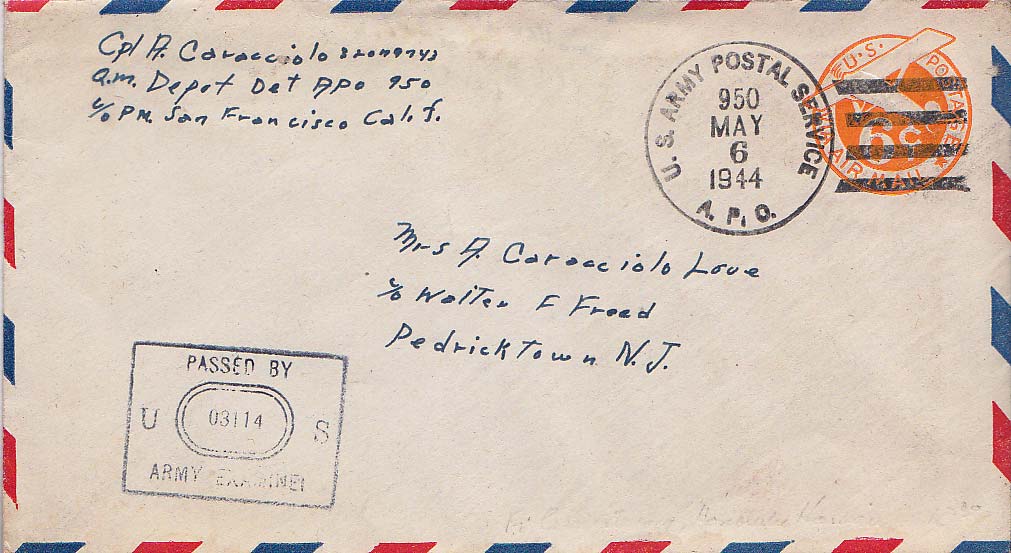 Cpl A. Caracciolo
Q.M. Depot Det APO 950
c/o P.M. San Francisco Calif.
U. S. ARMY POSTAL SERVICE
950
MAY
6
1944
A. P. O.
U.S. POSTAGE
6c
VIA AIR MAIL
Mrs A. Caracciolo Love
c/o Walter F Freed
Pedricktown N.J.
PASSED BY
U 03114 S
ARMY EXAMINER